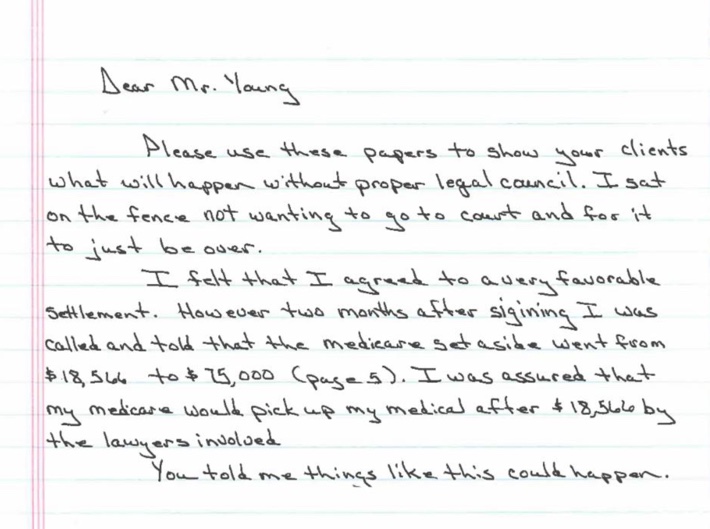 Dear Mr. Young
Please use these papers to show your clients
what will happen without proper legal council. I sat
on the fence not wanting to go to court and for it
to just be over.
I felt that I agreed to a very favorable
settlement. However two months after sigining I was
called and told that the medicare set aside went from
$18,566 to $75,000 (page 5). I was assured that
my medcare would pick up my medical after $18,566 by
the lawyers involved
You told me things like this could happen.